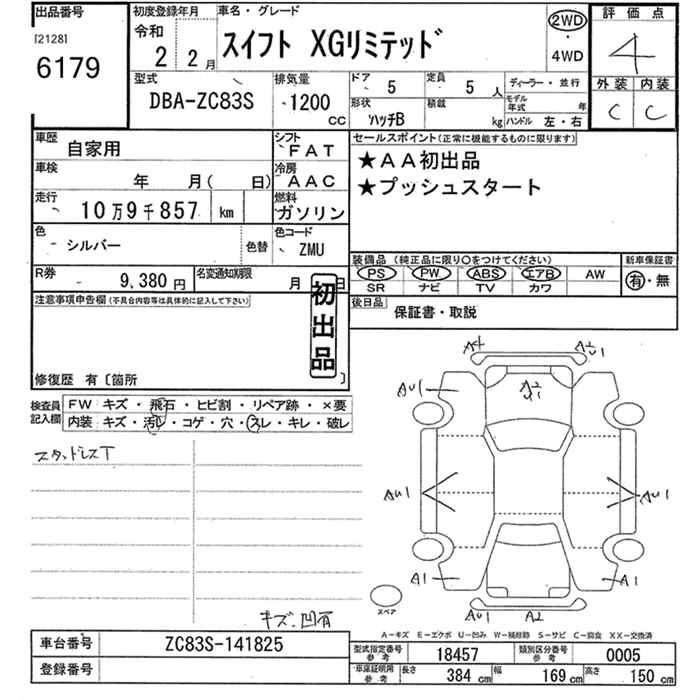 出品番号 初度登録年月 車名・グレード 2WD 評価点
[2128] 令和 スイフト XGリミテッド ・ 4
6179 2 2月 4WD
型式 排気量 ドア 5 定員 5人 ディーラー・並行 外装 内装
DBA-ZC83S 1200cc 形状 ハッチB 積載 kg モデル年式 年 C C
ハンドル 左・右
車歴 自家用 シフト FAT セールスポイント(正常に機能するものに限ります)
車検 年 月( 日) 冷房 AAC ★AA初出品
走行 10万9千857 km 燃料 ガソリン ★プッシュスタート
色 シルバー 色替 色コード ZMU
装備品(純正品に限り○をつけてください) 新車保証書
R券 9,380円 名変通知期限 月 日 PS PW ABS エアB AW 有・無
SR ナビ TV カワ
注意事項申告欄(不具合内容等は具体的に記入して下さい) 初出品 後日品 保証書・取説
修復歴 有〔箇所 〕
検査員記入欄 FW キズ・飛石・ヒビ割・リペア跡・×要
内装 キズ・汚レ・コゲ・穴・スレ・キレ・破レ
スタッドレスT
キズ、凹有
A4 A2 U1
AU1 A2 U1
AU1 AU1
A1 A1
スペア AU1 A2
A-キズ E-エクボ U-凹み W-補修跡 S-サビ C-腐食 XX-交換済
車台番号 ZC83S-141825 型式指定番号 参考 18457 類別区分番号 参考 0005
登録番号 車庫証明用 参考 長さ 384cm 幅 169cm 高さ 150cm